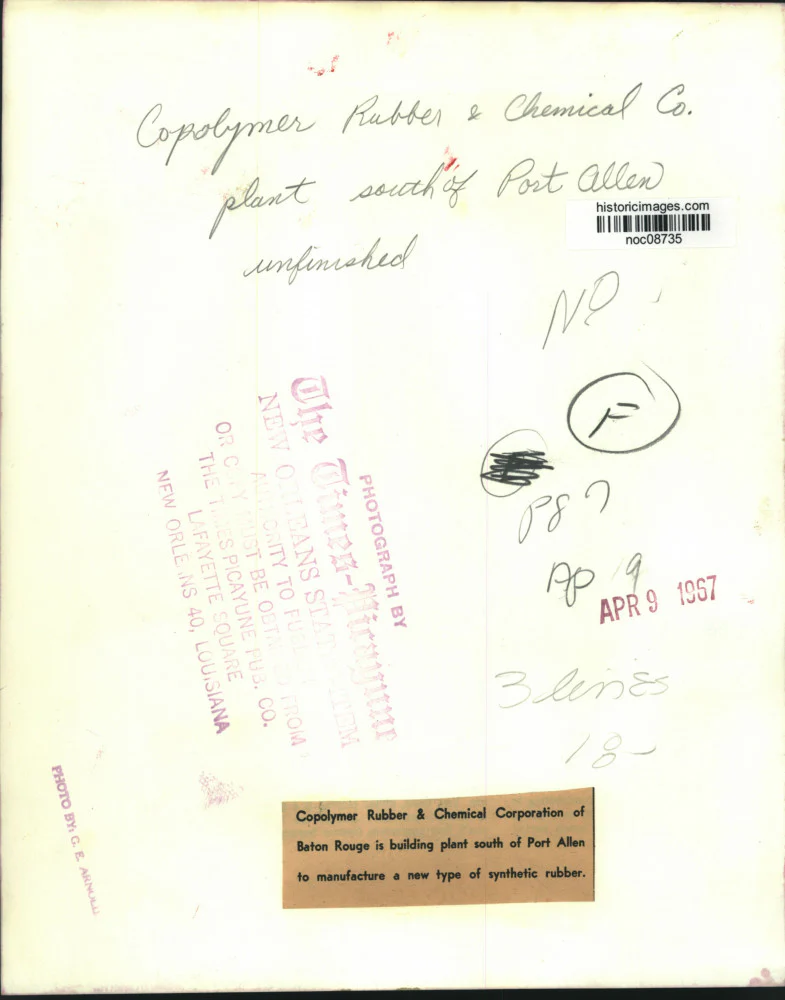 Copolymer Rubber & Chemical Co.
plant south of Port Allen
unfinished
historicimages.com
noc08735
NP
F
P87
AP 9
APR 9 1967
3 lines
18-
PHOTOGRAPH BY
The Times-Picayune
NEW ORLEANS STATES ITEM
AUTHORITY TO PUBLISH
OR C Y MUST BE OBTAINED FROM
THE TIMES PICAYUNE PUB. CO.
LAFAYETTE SQUARE
NEW ORLEANS 40, LOUISIANA
PHOTO BY: G. E. ARNOLD
Copolymer Rubber & Chemical Corporation of
Baton Rouge is building plant south of Port Allen
to manufacture a new type of synthetic rubber.